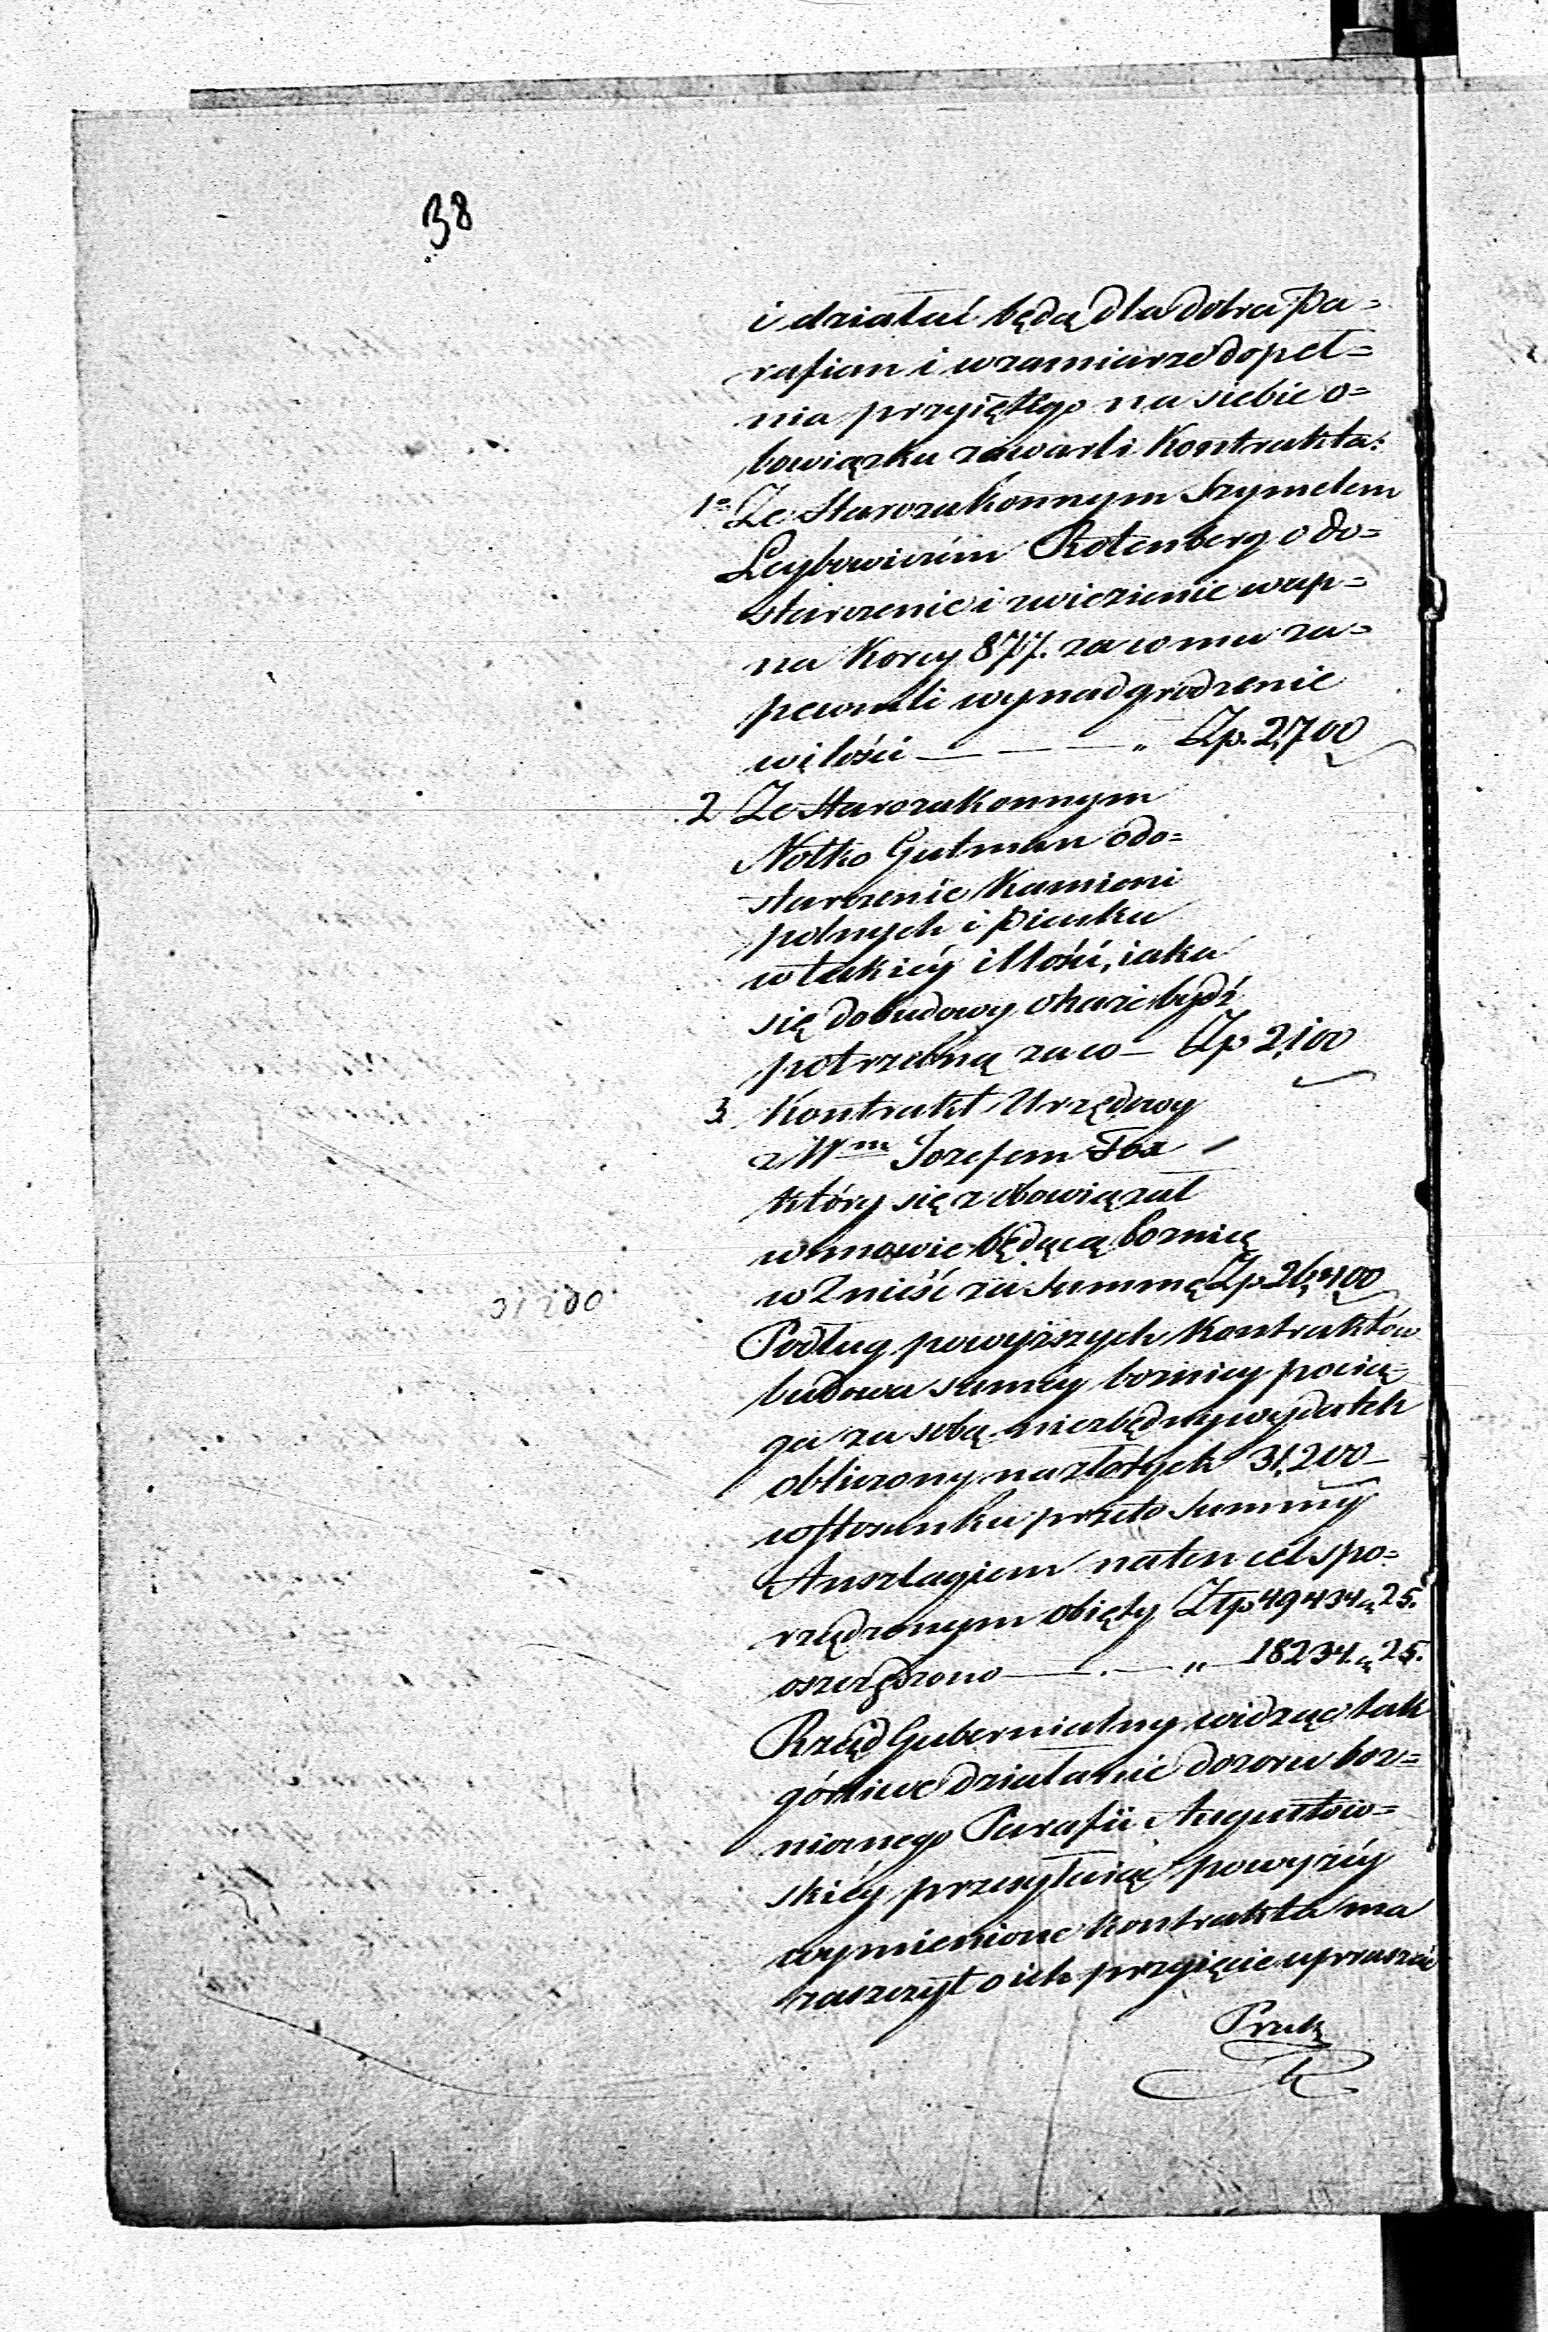 38
i działać będą dla dobra Pa=
rafian i w zamiarze dopeł=
nia przyiętego na siebie o=
bowiązku zawarli Kontrakta:
1º Ze Starozakonnym Szymelem
Leybowiczem Rotenberg o do=
starczenie i zwiezienie wap=
na Korcy 877. za co mu za=
pewnili wynadgrodzenie
w ilości — — — „ Zp. 2,700
2 Ze Starozakonnym
Notko Gutman o do=
starczenie Kamieni
polnych i Piasku
w takiéy illości, iaka
się do budowy okaże bydź
potrzebną za co — Zp 2,100
3. Kontrakt Urzędowy
z Wm Jozefem Fox
który się zobowiązał
w mowie będącą bożnicę
wznieść za Summę Zp. 26,400
Podług powyższych Kontraktów
budowa samey bożnicy pocią=
ga za sobą niezbędny wydatek
obliczony na złotych 31,200 —
w stosunku przeto Summy
Anszlagiem na ten cel spo=
rządzonym obięty Ztp 49434 „ 25.
oszczędzono — . — „ — 18234 „ 25.
Rząd Gubernialny widząc tak
górliwe działanie dozoru boż=
niczego Parafii Augustow=
skiéy przesyłaiąc powyżéy
wymienione Kontrakta ma
zaszczyt o ich przyięcie upraszać
31200